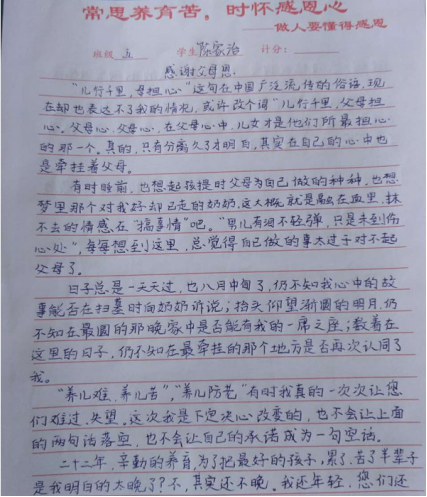 常思养育苦，时怀感恩心
——做人要懂得感恩
班级 五 学生 陈家治 计分：
感谢父母恩
“儿行千里，母担心”这句在中国广泛流传的俗语，现
在却也表达不了我的情况，或许改个词“儿行千里，父母担
心。父母心，父母心，在父母心中，儿女才是他们所最担心
的那一个。真的，只有分离久了才明白，其实在自己的心中也
是牵挂着父母。
有时睡前，也想起孩提时父母为自己做的种种，也想
梦里那个对我好却已走的奶奶，这大概就是融在血里，抹
不去的情感在“搞事情”吧。“男儿有泪不轻弹，只是未到伤
心处”，每每想到这里，总觉得自己做的事太过于对不起
父母了。
日子总是一天天过，也八月中旬了，仍不知我心中的故
事能否在扫墓时向奶奶诉说；抬头仰望渐圆的明月，仍
不知在最圆的那晚，家中是否能有我的一席之座；数着在
这里的日子，仍不知在最牵挂的那个地方是否再次认同了
我。
“养儿难，养儿苦”，“养儿防老”有时我真的一次次让您
们难过，失望。这次我是下定决心改变的，也不会让上面
的两句话落空，也不会让自己的承诺成为一句空话。
二十二年，辛勤的养育，为了把最好的孩子，累了，苦了半辈子
是我明白的太晚了？不，其实还不晚。我还年轻，您们还